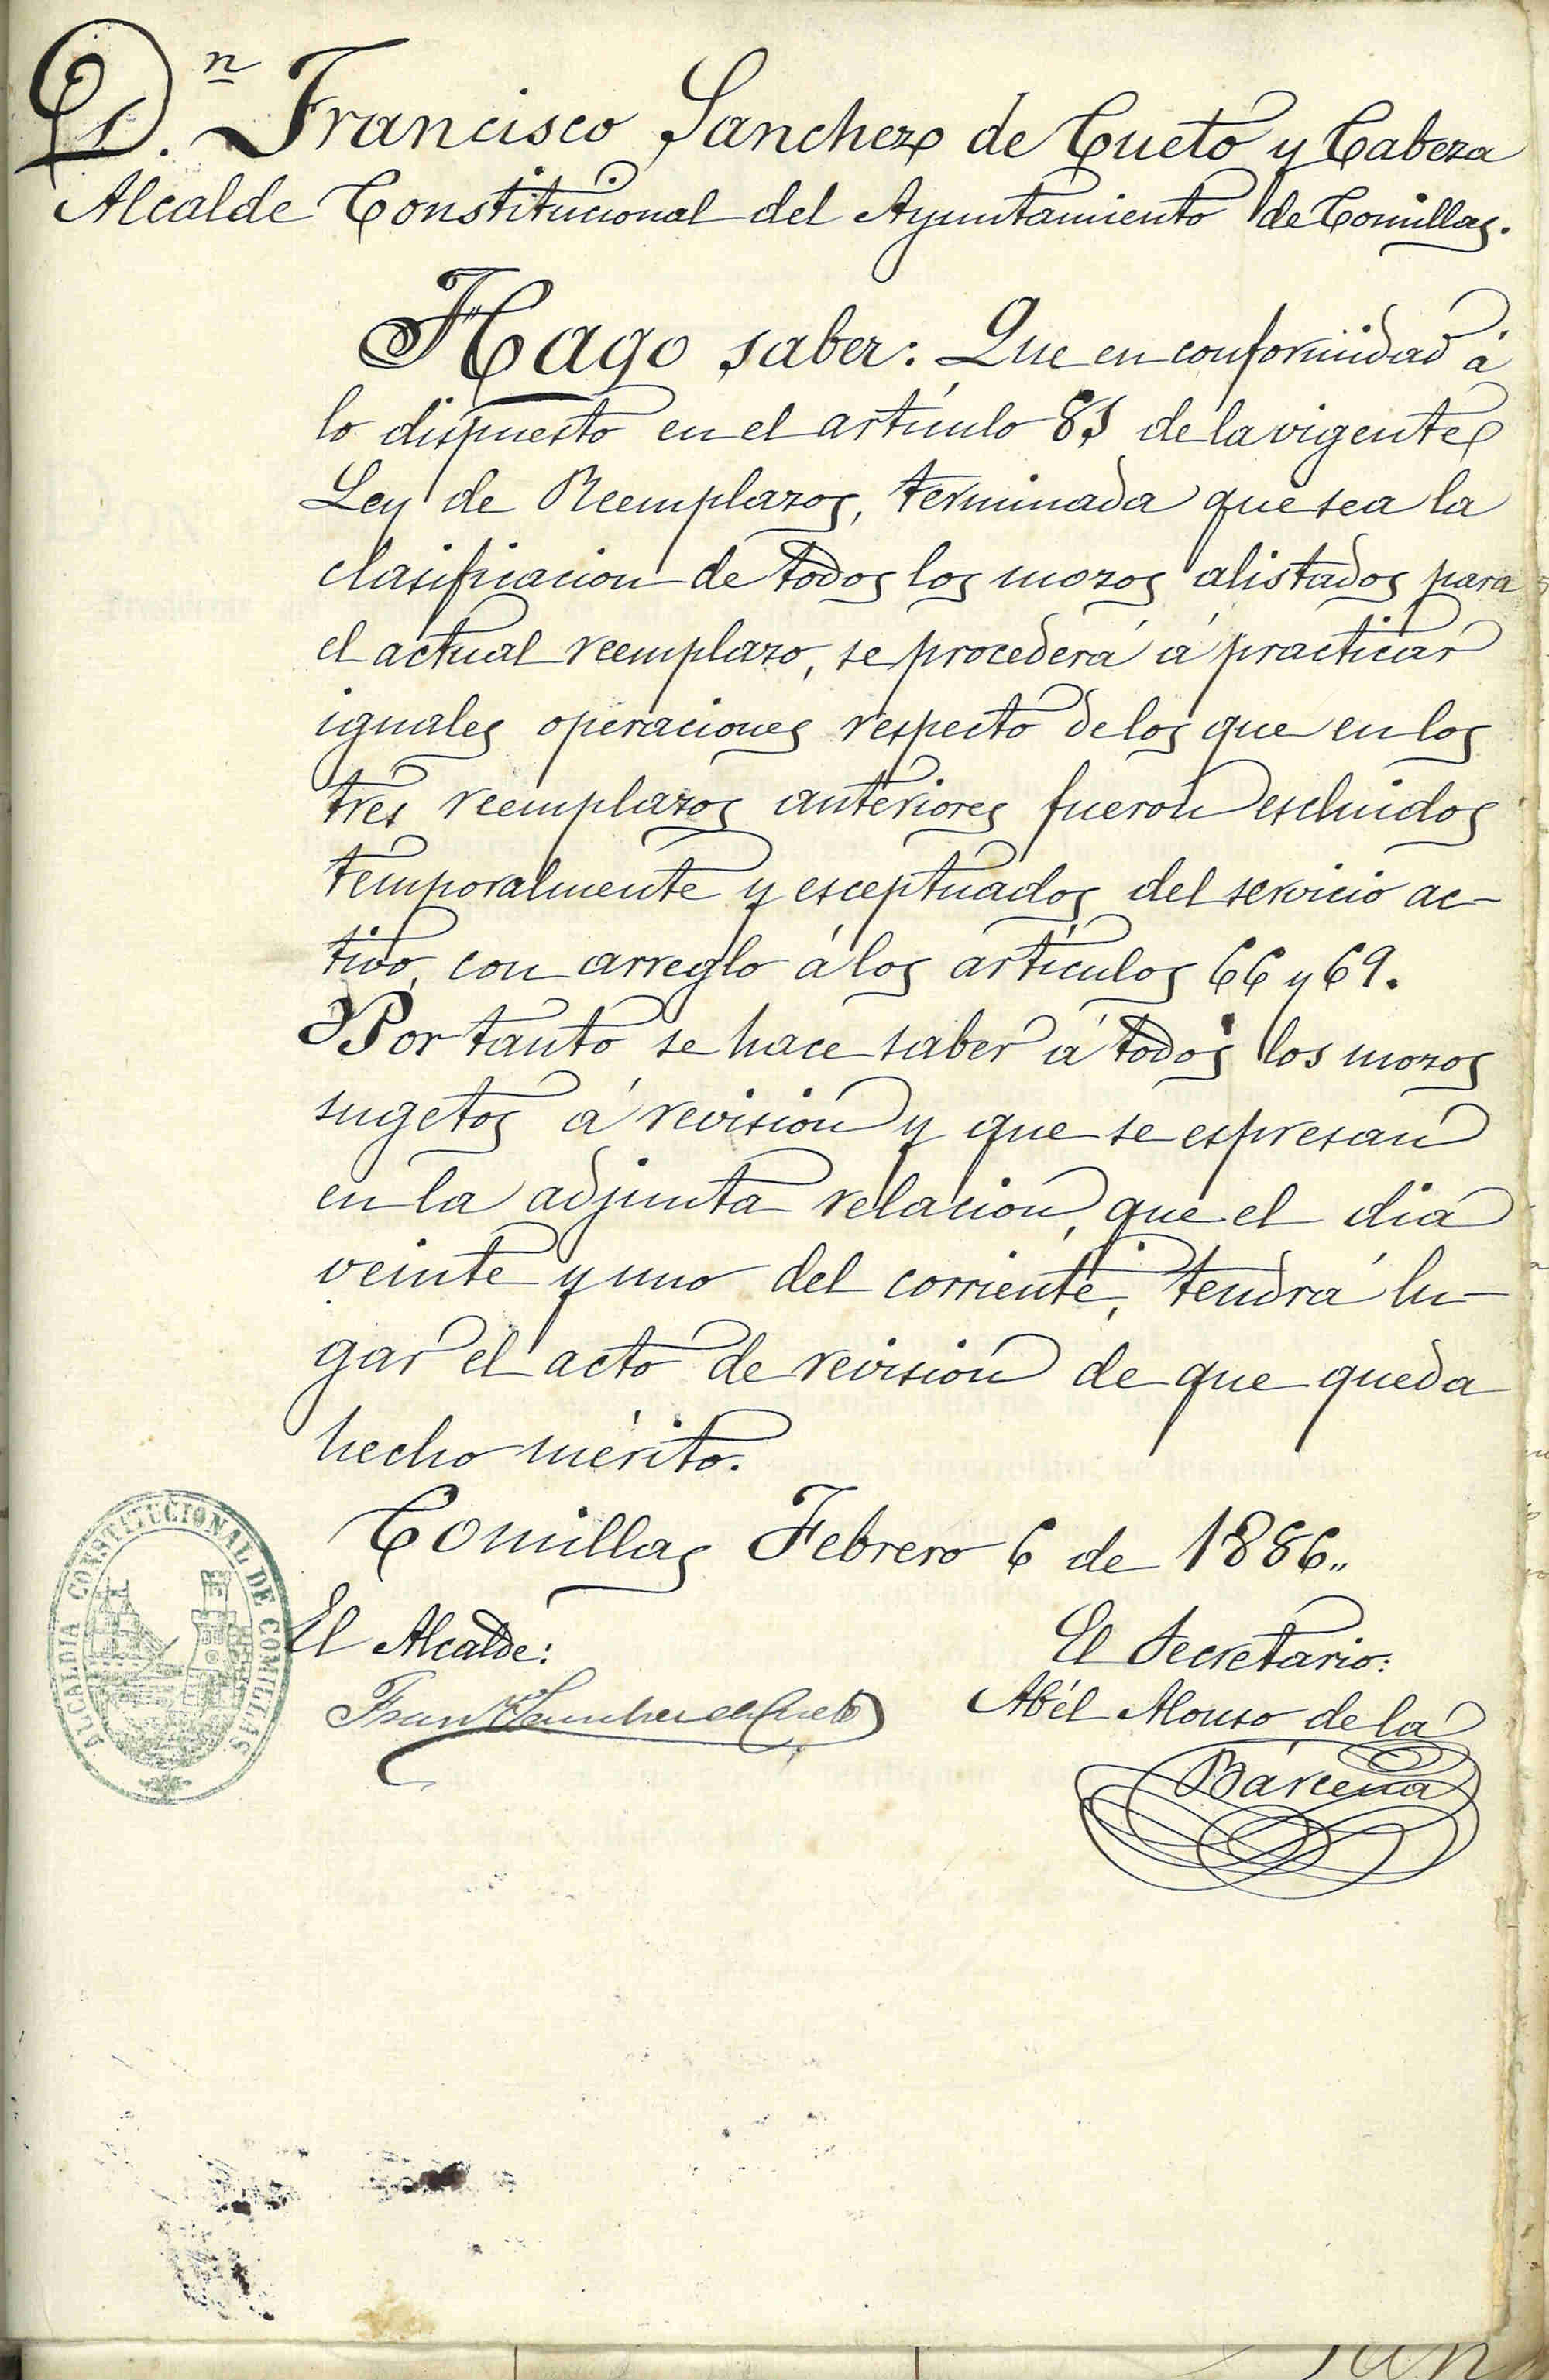 D.n Francisco Sanchez de Cueto y Cabeza
Alcalde Constitucional del Ayuntamiento de Comillas.
Hago saber: Que en conformidad á
lo dispuesto en el artículo 83 de la vigente
Ley de Reemplazos, terminada que sea la
clasificacion de todos los mozos alistados para
el actual reemplazo, se procederá á practicar
iguales operaciones respecto de los que en los
tres reemplazos anteriores fueron escluidos
temporalmente y esceptuados del servicio ac-
tivo, con arreglo á los artículos 66 y 69.
Por tanto se hace saber á todos los mozos
sugetos á revision y que se espresan
en la adjunta relacion, que el dia
veinte y uno del corriente, tendrá lu-
gar el acto de revision de que queda
hecho mérito.
Comillas Febrero 6 de 1886.,
ALCALDIA CONSTITUCIONAL DE COMILLAS
El Alcalde:
El Secretario:
Fran.co Sanchez de Cueto
Abél Alonso de la
Bárcena